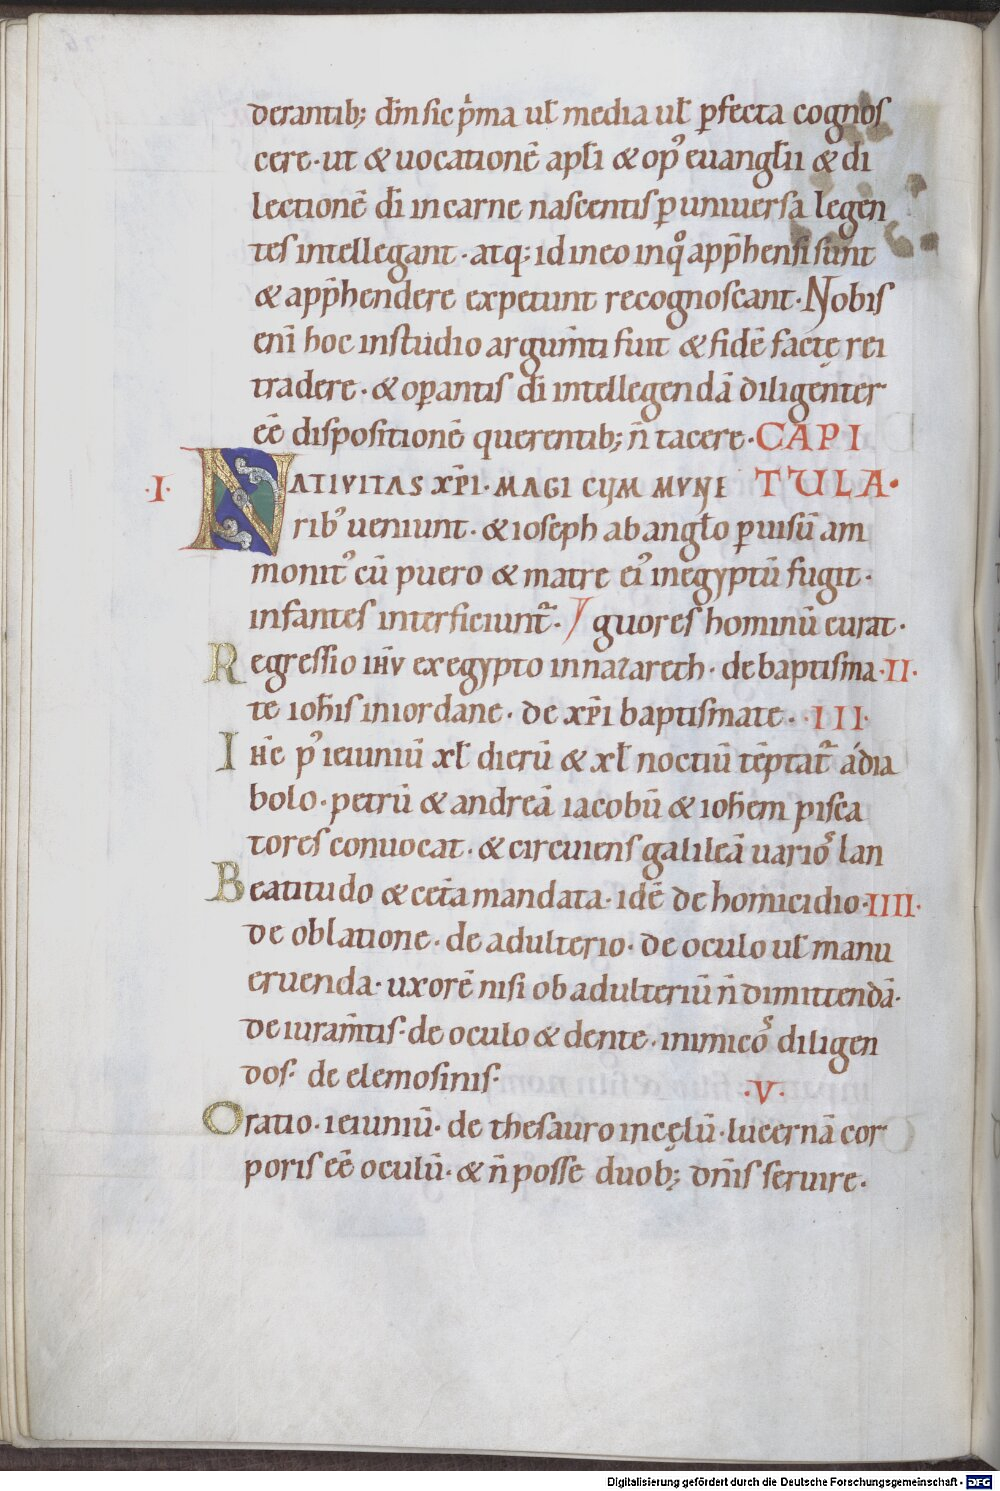 derantib; dm̄ sic p̍ma ul̄ media ul̄ ꝑfecta cognos
cere · ut & uocationē apl̄i & opꝰ euangl̄ii & di
lectionē dī in carne nascentis ꝑ uniuersa legen
tes intellegant · atq; id in eo in qͦ app̄hensi sunt
& app̄hendere expetunt recognoscant · Nobis
enī hoc in studio argum̄ti fuit & fidē factę rei
tradere · & oꝑantis dī intellegendā diligenter
eē dispositionē querentib; n̄ tacere · CAPI
·I· NATIVITAS XP̄I · MAGI CUM MUNE TULA ·
ribꝰ ueniunt · & ioseph ab angl̄o ꝑ uisū am
monitꝰ cū puero & matre eiꝰ in egyptū fugit ·
infantes interficiunt᷑ · / guores hominū curat ·
Regressio ih̄u ex egypto in nazareth · de baptisma · II ·
te ioh̄is in iordane · de xp̄i baptismate · · III ·
Ih̄c pꝰ ieiuniū xl̄ dierū & xl̄ noctiū tēptat᷑ a dia
bolo · petrū & andreā iacobū & ioh̄em pisca
tores conuocat · & circuiens galileā uarioˢ lan
Beatitudo & cet̄a mandata · idē de homicidio · IIII ·
de oblatione · de adulterio · de oculo ul̄ manu
eruenda · uxorē nisi ob adulteriū n̄ dimittendā ·
de iuram̄tis · de oculo & dente · inimicoˢ diligen
dos · de elemosinis · · V ·
Oratio · ieiuniū · de thesauro in cęlū · lucernā cor
poris eē oculū · & n̄ posse duob; dn̄is seruire ·
Digitalisierung gefördert durch die Deutsche Forschungsgemeinschaft - DFG